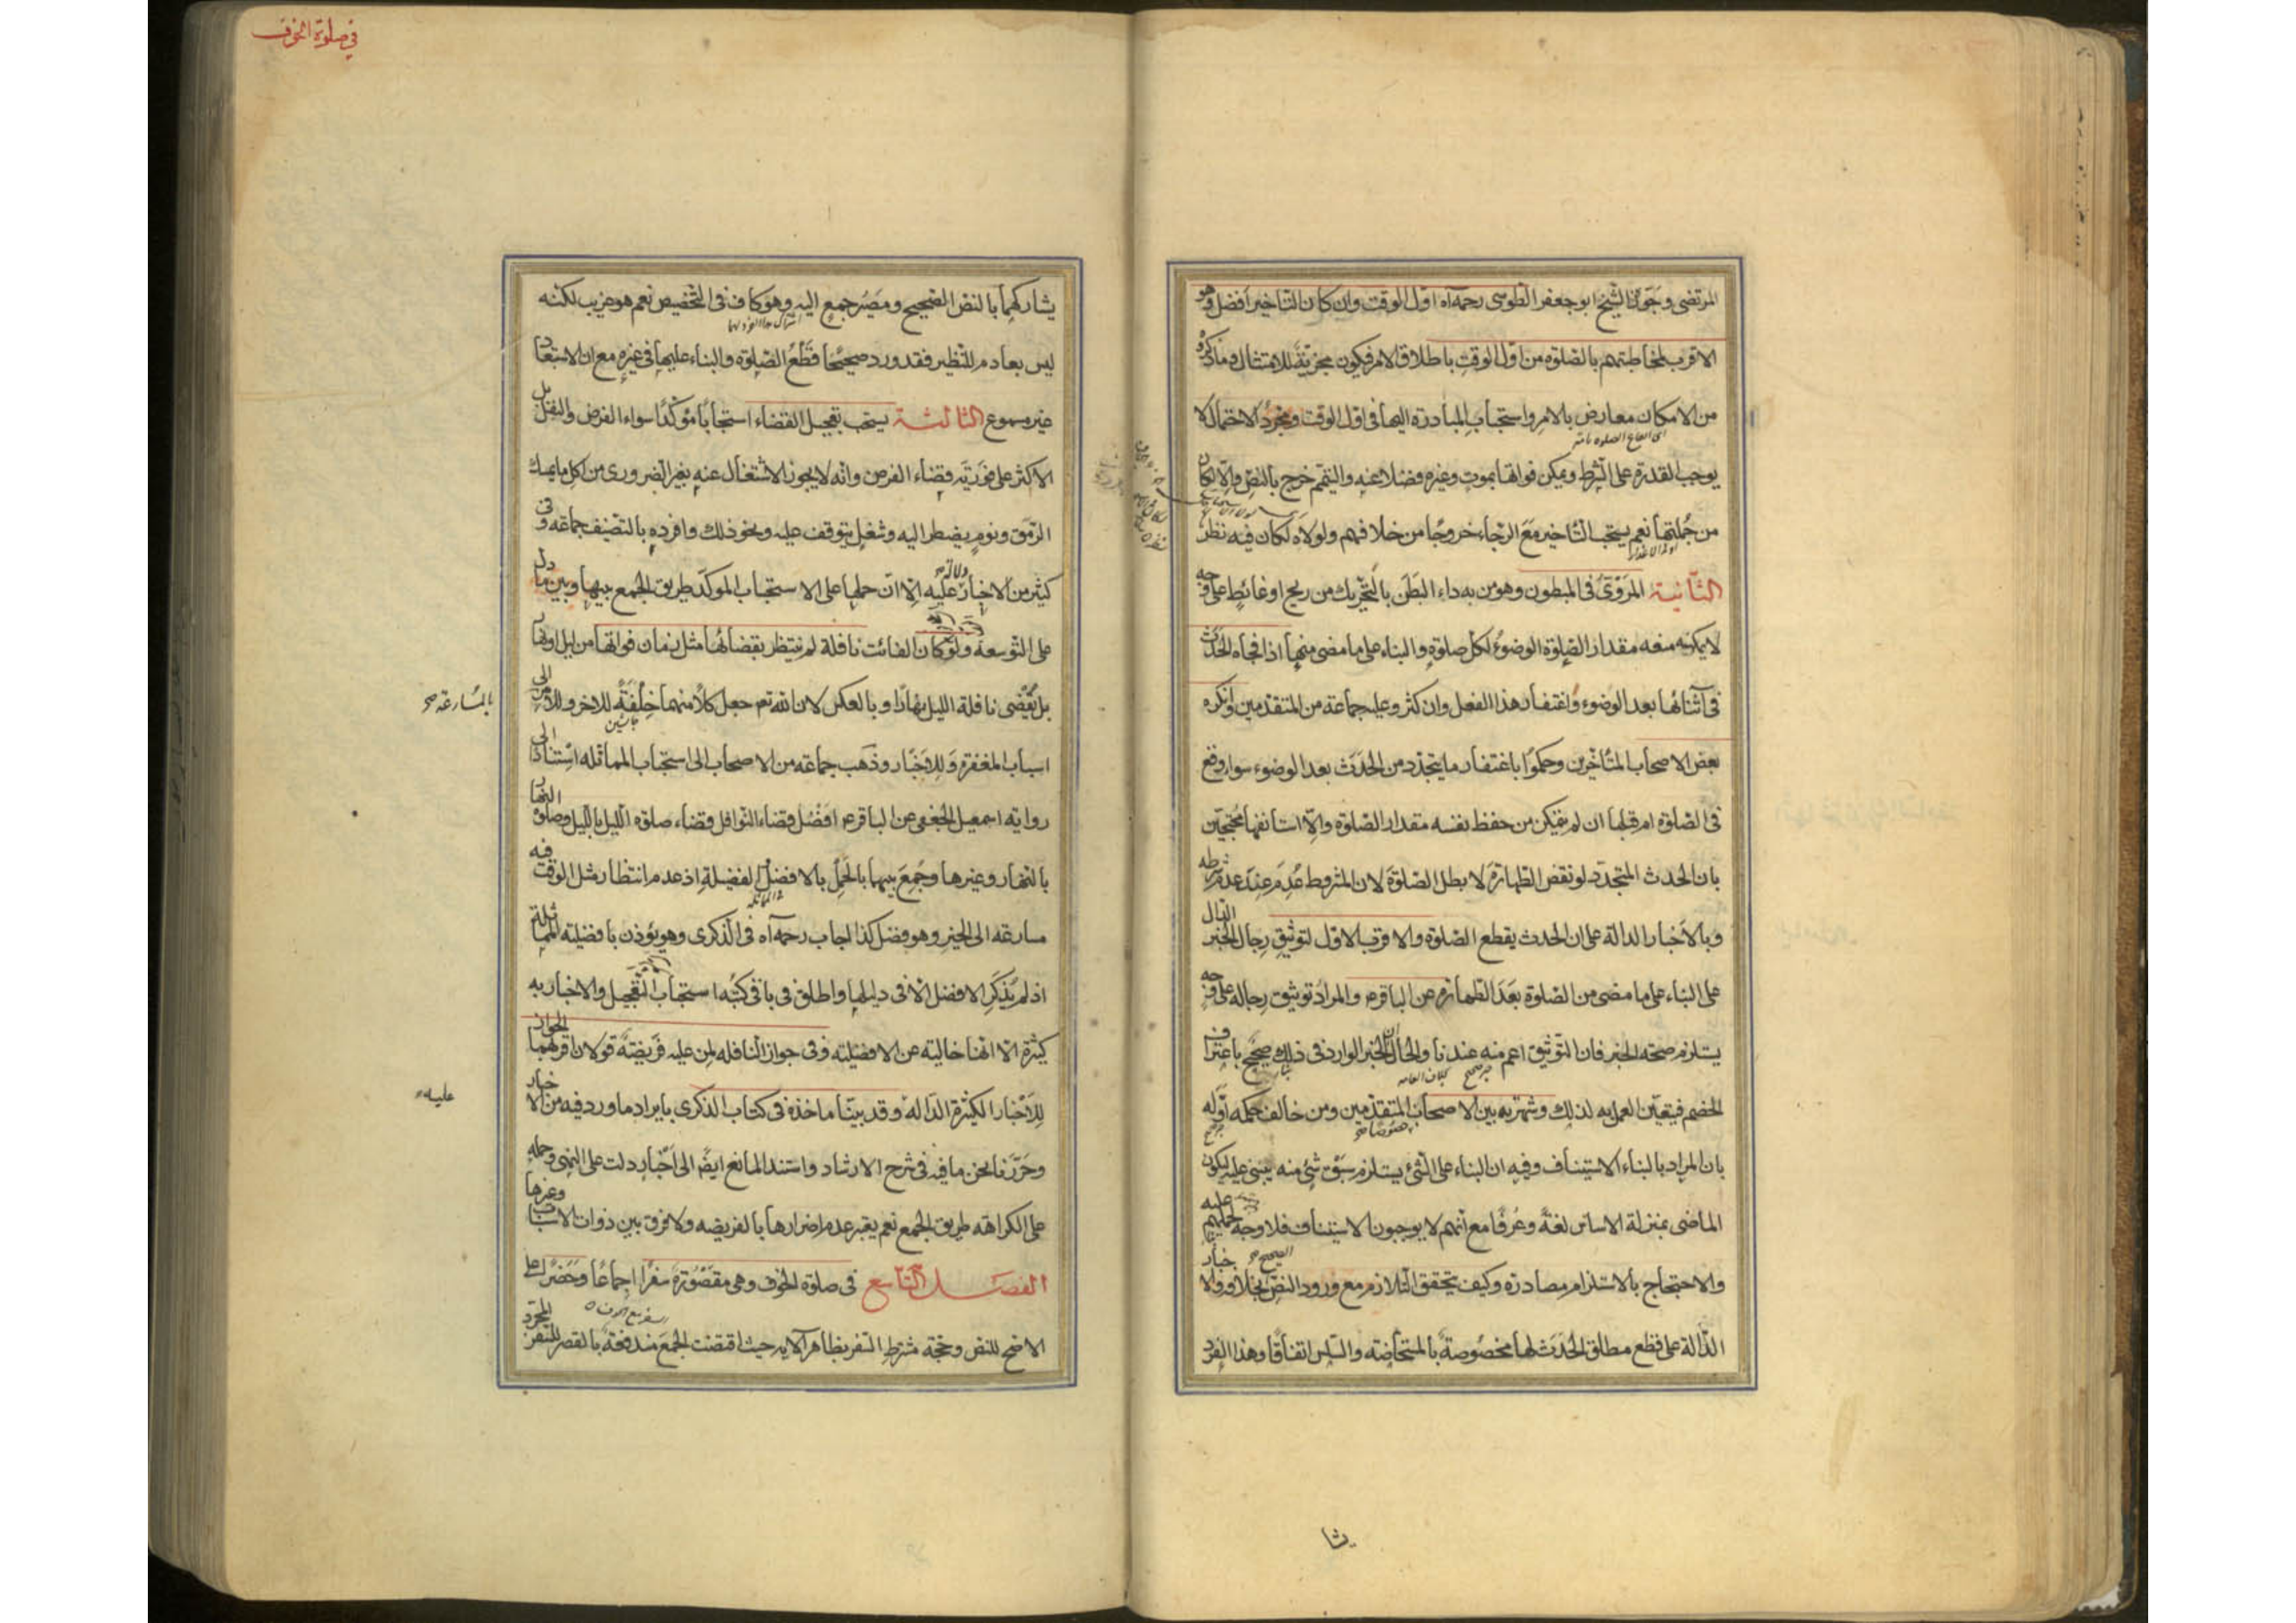 المرتضى وجوزه الشيخ ابو جعفر الطوسى رحمه اه اول الوقت وان كان التاخير افضل وهو
الاقرب لمخاطبتهم بالصلوة من اول الوقت باطلاق الامر فيكون مجزية للامتثال وما ذكره
من الامكان معارض بالامر واستحباب المبادرة اليها فى اول الوقت ومجرد الاحتمال لا
يوجب القدرة على الشرط ويمكن فواتها بموت وغيره فضلا عنه والتيمم خرج بالنص والا لكان
من جملتها نعم يستحب التاخير مع الرجاء خروجا من خلافهم ولولاه لكان فيه نظر
الثانية المروى فى المبطون وهو من به داء البطن بالتحريك من ريح او غائط على وجه
لا يمكنه منعه مقدار الصلوة الوضوء لكل صلوة والبناء على ما مضى منها اذا فجاه الحدث
فى اثنائها بعد الوضوء واغتفار هذا الفعل وان كثر وعليه جماعة من المتقدمين وانكره
بعض الاصحاب المتاخرين وحكموا باغتفار ما يتجدد من الحدث بعد الوضوء سواء وقع
فى الصلوة ام قبلها ان لم يتمكن من حفظ نفسه مقدار الصلوة والا استانفها محتجين
بان الحدث المتجدد لو نقض الطهارة لابطل الصلوة لان المشروط عدم عند عدم شرطه
وبالاخبار الدالة على ان الحدث يقطع الصلوة والاقرب الاول لتوثيق رجال الخبر الدال
على البناء على ما مضى من الصلوة بعد الطهارة عن الباقر ع والمراد توثيق رجاله على وجه
يستلزم صحة الخبر فان التوثيق اعم منه عندنا والحال ان الخبر الوارد فى ذلك صحيح باعتراف
الخصم فيتعين العمل به لذلك وشهرته بين الاصحاب خصوصا المتقدمين ومن خالف حكمه اوله
بان المراد بالبناء الاستيناف وفيه ان البناء على الشئ يستلزم سبق شئ منه يبنى عليه ليكون
الماضى بمنزلة الاساس لغة وعرفا مع انهم لا يوجبون الاستيناف فلا وجه لحملهم عليه
والاحتجاج بالاستلزام مصادرة وكيف يتحقق التلازم مع ورود النص الصحيح بخلافه والاخبار
الدالة على قطع مطلق الحدث لها مخصوصة بالمستحاضة والسلس اتفاقا وهذا الفرد
يشا
فى صلوة الخوف
يشاركهما بالنص الصحيح ومصير جمع اليه وهو كاف فى التخصيص نعم هو غريب لكنه
ليس بعادم للنظير فقد ورد صحيحا قطع الصلوة والبناء عليها فى غيره مع ان الاستبعاد
غير مسموع الثالثة يستحب تعجيل القضاء استحبابا مؤكدا سواء الفرض والنفل بل
الاكثر على فورية قضاء الفرض وانه لا يجوز الاشتغال عنه بغير الضرورى من اكل ما يمسك
الرمق ونوم يضطر اليه وشغل يتوقف عليه ونحو ذلك وافرده بالتصنيف جماعة وفى
كثير من الاخبار دلالة عليه الا ان حملها على الاستحباب المؤكد طريق الجمع بينها وبين ما دل
على التوسعة ولو كان الفائت نافلة لم ينتظر بقضائها مثل زمان فواتها من ليل او نهار
بل يقضى نافلة الليل نهارا وبالعكس لان الله تع جعل كلا منهما خلفة للاخر وللامر الى
بالمسارعة صح
اسباب المغفرة وللاخبار وذهب جماعة من الاصحاب الى استحباب المماثلة استنادا الى
رواية اسمعيل الجعفى عن الباقر ع افضل قضاء النوافل قضاء صلوة الليل بالليل وصلوة النهار
بالنهار وغيرها وجمع بينهما بالحمل بالافضل الفضيلة اذ عدم انتظار مثل الوقت فيه
مسارعة الى الخير وهو فضل كذا اجاب رحمه اه فى الذكرى وهو يؤذن بافضلية المماثلة
اذ لم يذكر الافضل الا فى دليلها واطلق فى باقى كتبه استحباب التعجيل والاخبار به
كثيرة الا انها خالية عن الافضلية وفى جواز النافلة لمن عليه فريضة قولان اقربهما الجواز
للاخبار الكثيرة الدالة وقد بينا ماخذه فى كتاب الذكرى بايراد ما ورد فيه من الاخبار
عليه
وحررنا نحن ما فيه فى شرح الارشاد واستند المانع ايضا الى اخبار دلت على النهى وحمله
على الكراهة طريق الجمع نعم يعتبر عدم اضرارها بالفريضة ولا فرق بين ذوات الاسباب وغيرها
الفصل التاسع فى صلوة الخوف وهى مقصورة سفرا اجماعا وحضرا على
الاصح للنص وحجة مشترط السفر بظاهر الاية حيث اقتضت الجمع مندفعة بالقصر للسفر المجرد